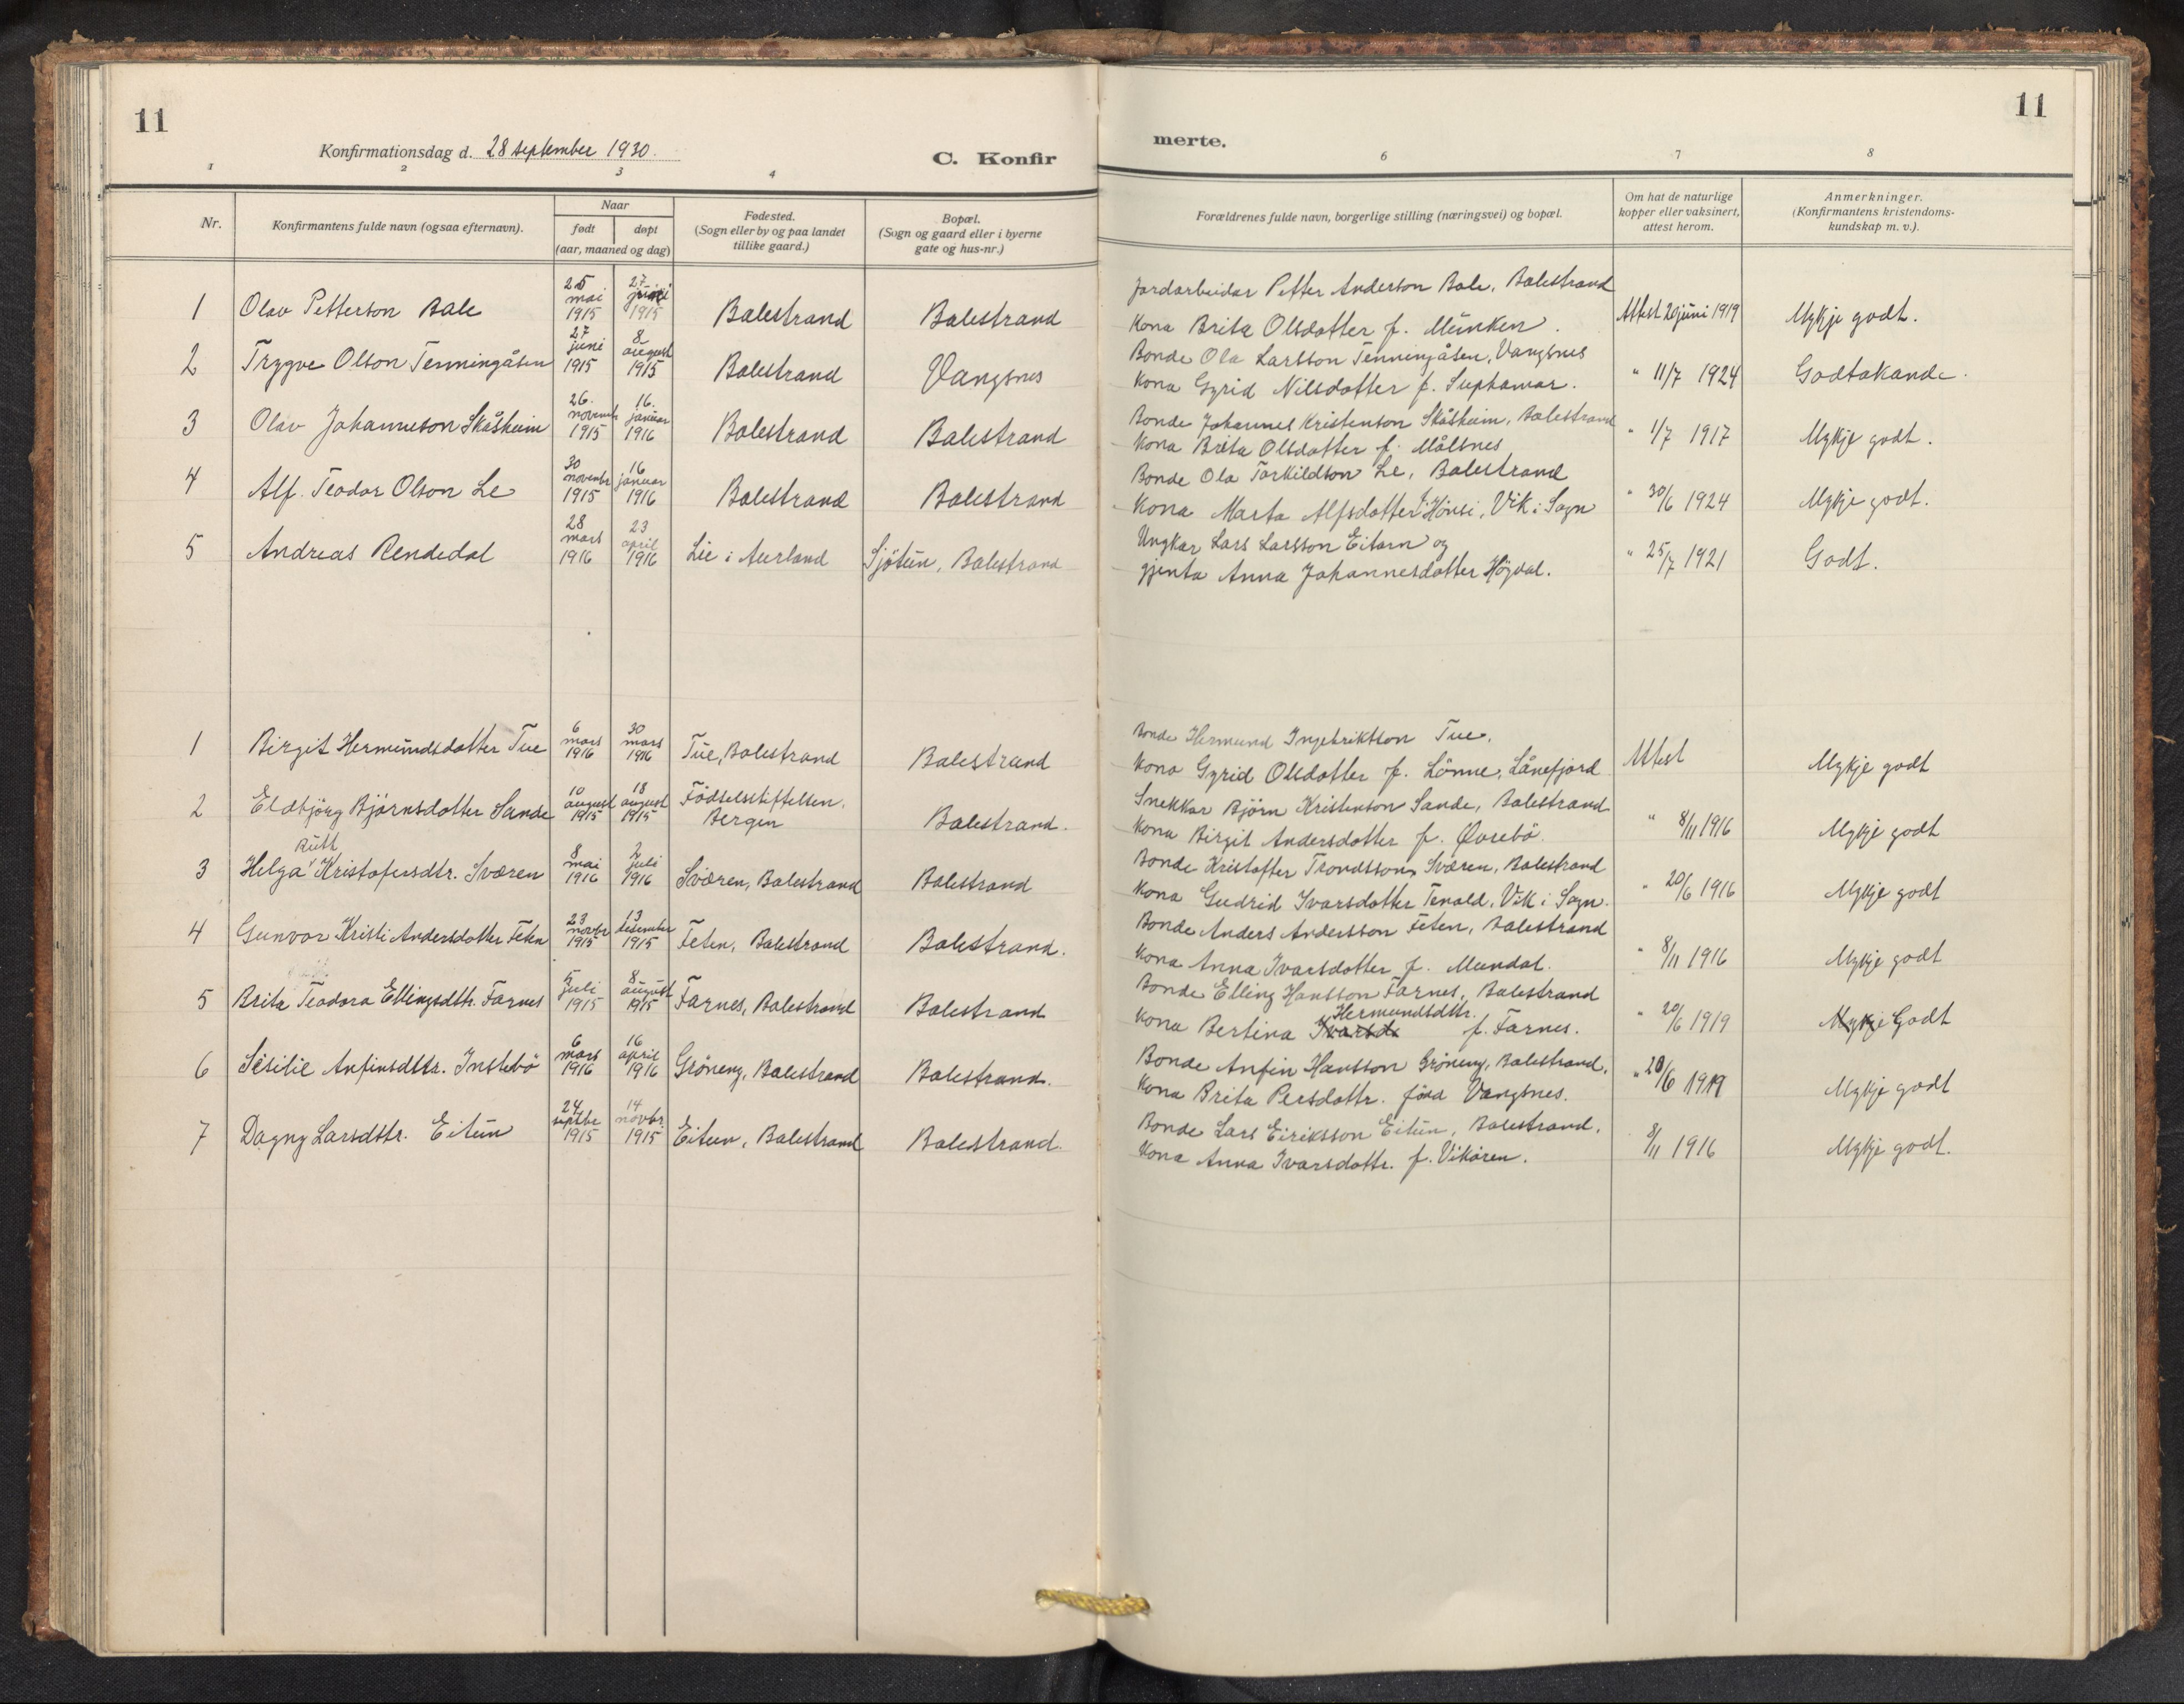 11
11
Konfirmationsdag d. 28 september 1930.
C. Konfir
merte.
1 2 3 4 6 7 8
Nr.
Konfirmantens fulde navn (ogsaa efternavn).
Naar
født døpt
(aar, maaned og dag)
Fødested.
(Sogn eller by og paa landet
tillike gaard.)
Bopæl.
(Sogn og gaard eller i byerne
gate og hus-nr.)
Forældrenes fulde navn, borgerlige stilling (næringsvei) og bopæl.
Om hat de naturlige
kopper eller vaksinert,
attest herom.
Anmerkninger.
(Konfirmantens kristendoms-
kundskap m. v.).
1 Olav Petterson Bale 25 mai 1915 27 juni 1915 Balestrand Balestrand
Jordarbeidar Petter Anderson Bale, Balestrand
Kona Brita Olsdotter f. Munken.
Attest 20 juni 1919 Mykje godt.
2 Trygve Olson Tenningåsen 27 juni 1915 8 august 1915 Balestrand Vangsnes
Bonde Ola Larsson Tenningåsen, Vangsnes
Kona Gyrid Nilsdotter f. Suphamar.
" 11/7 1924 Godtakande.
3 Olav Johanneson Skåsheim 26. novembr 1915 16. januar 1916 Balestrand Balestrand
Bonde Johannes Kristenson Skåsheim, Balestrand
Kona Brita Olsdotter f. Målsnes
" 1/7 1917 Mykje godt.
4 Alf Teodor Olson Le 30 novembr 1915 16 januar 1916 Balestrand Balestrand
Bonde Ola Torkildson Le, Balestrand
Kona Marta Alfsdotter f. Hönsi, Vik i Sogn
" 30/6 1924 Mykje godt.
5 Andreas Rendedal 28 mars 1916 23 april 1916 Lie i Aurland Sjötun, Balestrand
Ungkar Lars Larsson Eitorn og
gjenta Anna Johannesdotter Högdal.
" 25/7 1921 Godt.
1 Birgit Hermundsdotter Tue 6 mars 1916 30 mars 1916 Tue, Balestrand Balestrand
Bonde Hermund Ingebriktson Tue.
Kona Gyrid Olsdotter f. Lönne, Lånefjord
Attest Mykje godt
2 Eldbjörg Björnsdotter Sande 10 august 1915 18 august 1915 Födselsstiftelsen, Bergen Balestrand.
Snekkar Björn Kristenson Sande, Balestrand
Kona Birgit Andersdotter f. Øvrebö.
" 8/11 1916 Mykje godt
Ruth
3 Helga Kristofersdtr. Sværen 8 mai 1916 2 juli 1916 Sværen, Balestrand Balestrand
Bonde Kristoffer Trondsson Sværen, Balestrand
Kona Gudrid Ivarsdotter Tenold, Vik i Sogn.
" 20/6 1916 Mykje godt
4 Gunvor Kristi Andersdotter Feten 23 novbr 1915 13 desember 1915 Feten, Balestrand Balestrand.
Bonde Anders Andersson Feten, Balestrand
Kona Anna Ivarsdotter f. Mundal.
" 8/11 1916 Mykje godt
5 Brita Teodora Ellingsdtr. Farnes 5 juli 1915 8 august 1915 Farnes, Balestrand Balestrand
Bonde Elling Hansson Farnes, Balestrand
Kona Bertina Ivarsd. Hermundsdtr. f. Farnes.
" 20/6 1919 Mykje Godt
6 Sesilie Anfinsdtr. Instebö 6 mars 1916 16 april 1916 Gröneng, Balestrand Balestrand.
Bonde Anfin Hansson Gröneng, Balestrand.
Kona Brita Persdottr. föra Vangsnes.
" 20/6 1919 Mykje godt
7 Dagny Larsdtr. Eitun 24 septbr 1915 14 novbr. 1915 Eitun, Balestrand Balestrand.
Bonde Lars Eiriksson Eitun, Balestrand.
Kona Anna Ivarsdottr. f. Vikören.
8/11 1916 Mykje godt.